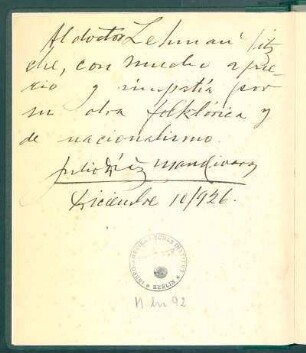 Al doctor Lehman Nitz
che, con mucho apre
cio y simpatía por
su obra folklórica y
de nacionalismo
Julio Díaz
Diciembre 10/926.
BERLIN